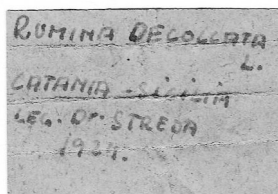 RUMINA DECOLLATA
L.
CATANIA - SICILIA
LEG. Dr. STREDA
1934.